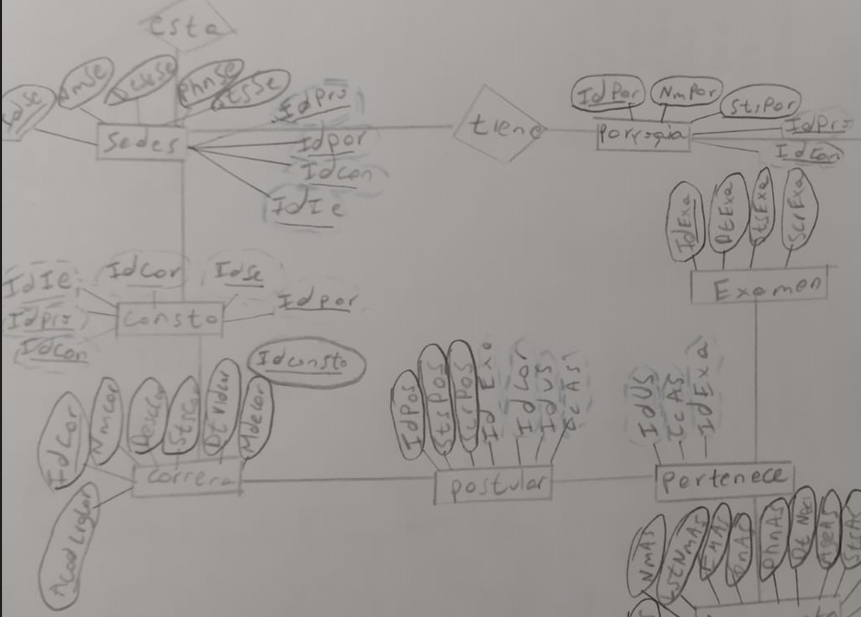 esta
IdSe
NmSe
DescSe
PhnSe
StsSe
IdPrs
Idpor
Idcon
IdIe
Sedes
tiene
IdPor
NmPor
StsPor
IdPrs
Idcon
IdExa
DtExa
StsExa
ScrExa
Examen
IdIe
IdCor
IdSe
Idpor
Idprs
Idcon
consta
Idconsta
IdCor
NmCor
DescCor
StsCor
MdeCor
carrera
IdPos
StsPos
ScrPos
Id Exa
IdCor
IdUS
postular
IdUS
IcAS
IdExa
pertenece
NmAS
LstNmAS
EmAS
PhnAS